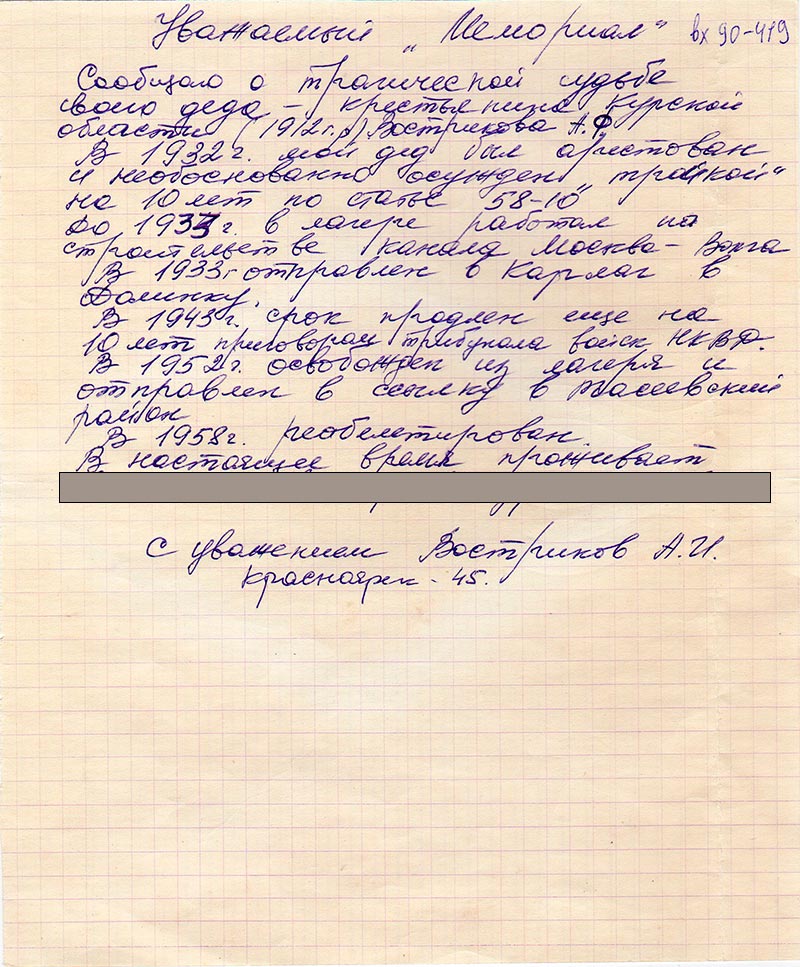 Уважаемый „Мемориал“ вх 90-419
Сообщаю о трагической судьбе
своего деда – крестьянина Курской
области (1912 г.р) Вострикова А.Ф
В 1932 г. мой дед был арестован
и необоснованно осужден „тройкой“
на 10 лет по статье 58-10
до 1933 г. в лагере работал на
строительстве канала Москва – Волга
В 1933 г отправлен в Карлаг в
Долинку.
В 1943 г. срок продлен еще на
10 лет приговором трибунала войск НКВД.
В 1952 г. освобожден из лагеря и
отправлен в ссылку в
район
В 1958 г. реобелетирован
В настоящее время проживает
С уважением Востриков А.И.
Красноярск - 45.